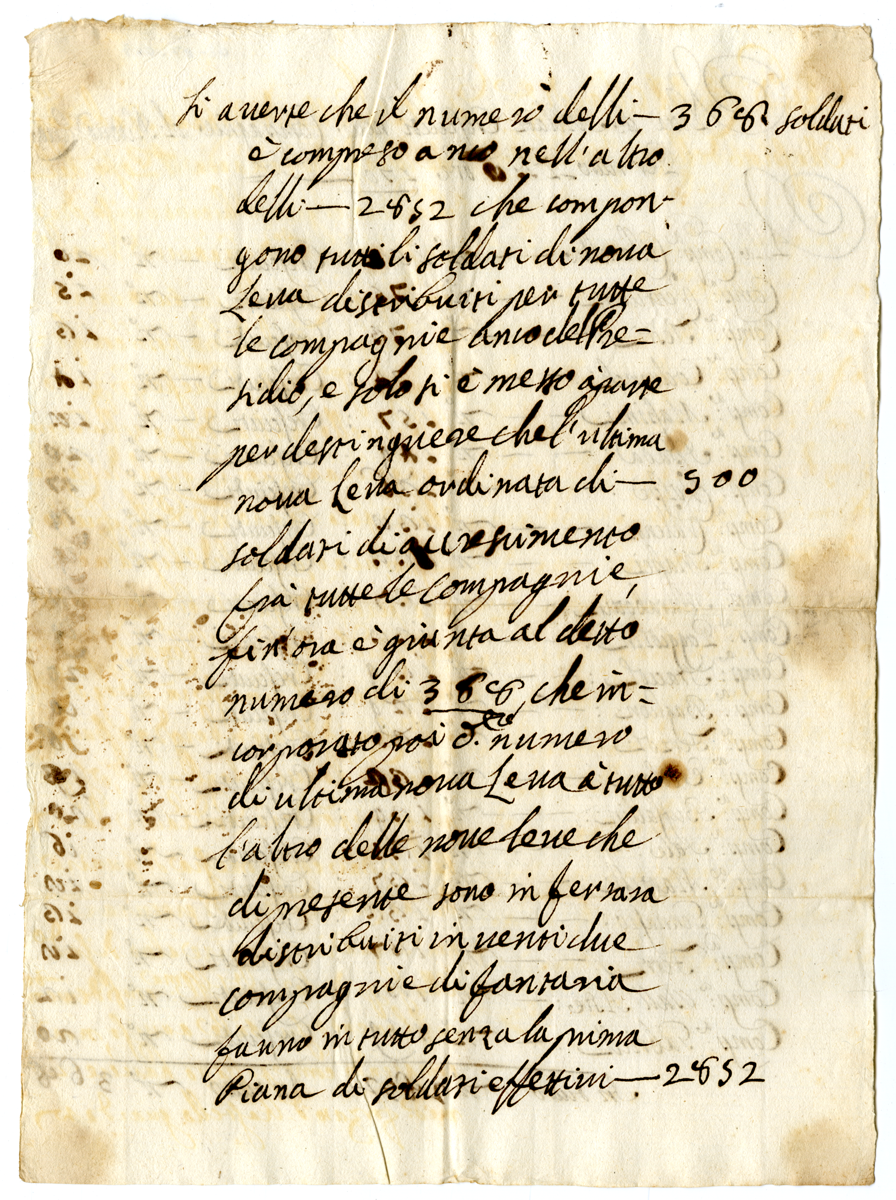 si auerte che il numero delli — 368 soldati
è compreso anco nell'altro
delli — 2852 che compon-
gono tutti li soldati di noua
Leua distribuiti per tutte
le compagnie anco del Pre=
sidio, e solo si è messo à parte
per destinguere che l'ultima
noua Leua ordinata di — 500
soldati di acresimento
frà tutte le compagnie,
fin' ora è giunta al detto
numero di 368, che in=
corporato poi d.º numero
di ultima noua Leua à tutto
l'altro delle noue leue che
di presente sono in ferrara
distribuiti in uenti due
compagnie di fantaria
fanno in tutto senza la prima
Piana di soldati effettiui — 2852